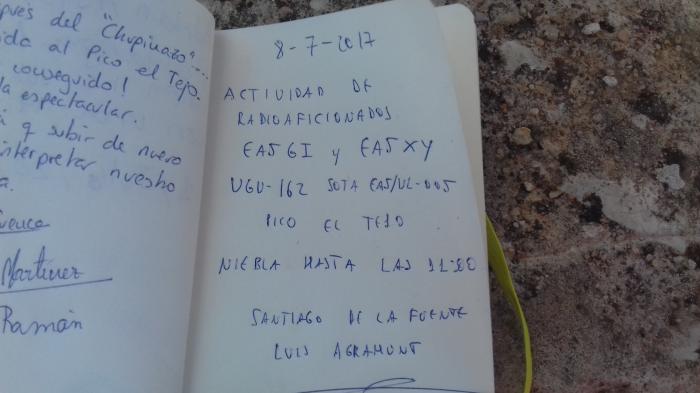 pués del "Chupinazo"...
ida al Pico el Tejo.
conseguido!
a espectacular.
q subir de nuevo
interpretar nuestro
a.
Martínez
Ramón
8-7-2017
ACTIVIDAD DE
RADIOAFICIONADOS
EA5GI y EA5XY
VGV-162 SOTA EA5/VL-005
PICO EL TEJO
NIEBLA HASTA LAS 11:00
SANTIAGO DE LA FUENTE
LUIS AGRAMUNT